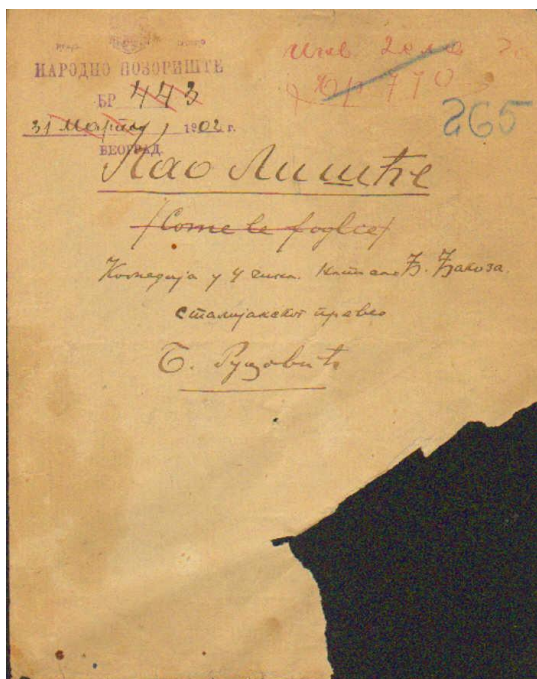 НАРОДНО ПОЗОРИШТЕ
БР 443
31 Марта 1902 г.
БЕОГРАД
265
Као Лишће
(Come le foglie)
Комедија у 4 чина. Написао Ђ. Ђакоза.
с талијанског превео